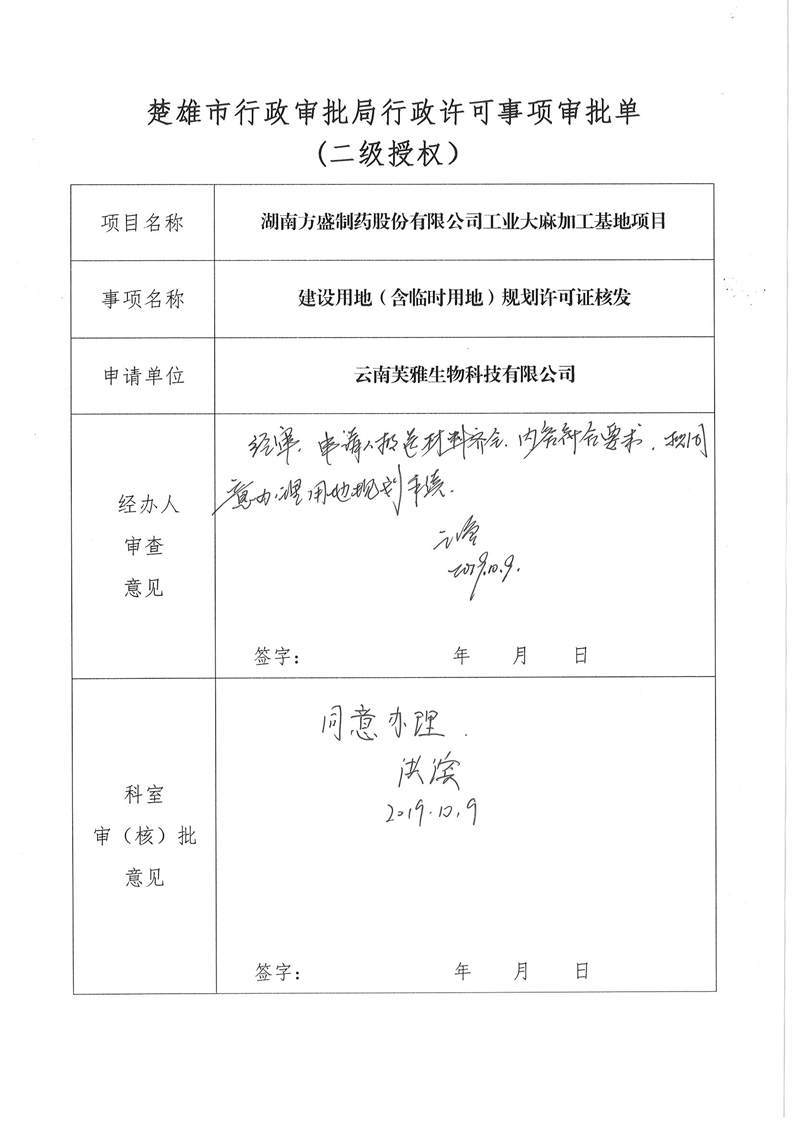 楚雄市行政审批局行政许可事项审批单
(二级授权)
项目名称
湖南方盛制药股份有限公司工业大麻加工基地项目
事项名称
建设用地(含临时用地)规划许可证核发
申请单位
云南芙雅生物科技有限公司
经办人
审查
意见
经审,申请人报送材料齐全,内容符合要求,拟同
意办理用地规划手续.
2019.10.9.
签字: 年 月 日
科室
审(核)批
意见
同意办理.
洪滢
2019.10.9
签字: 年 月 日